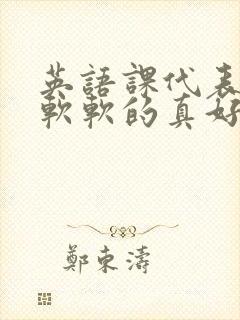 英語課代表
軟軟的真好
鄭東濤